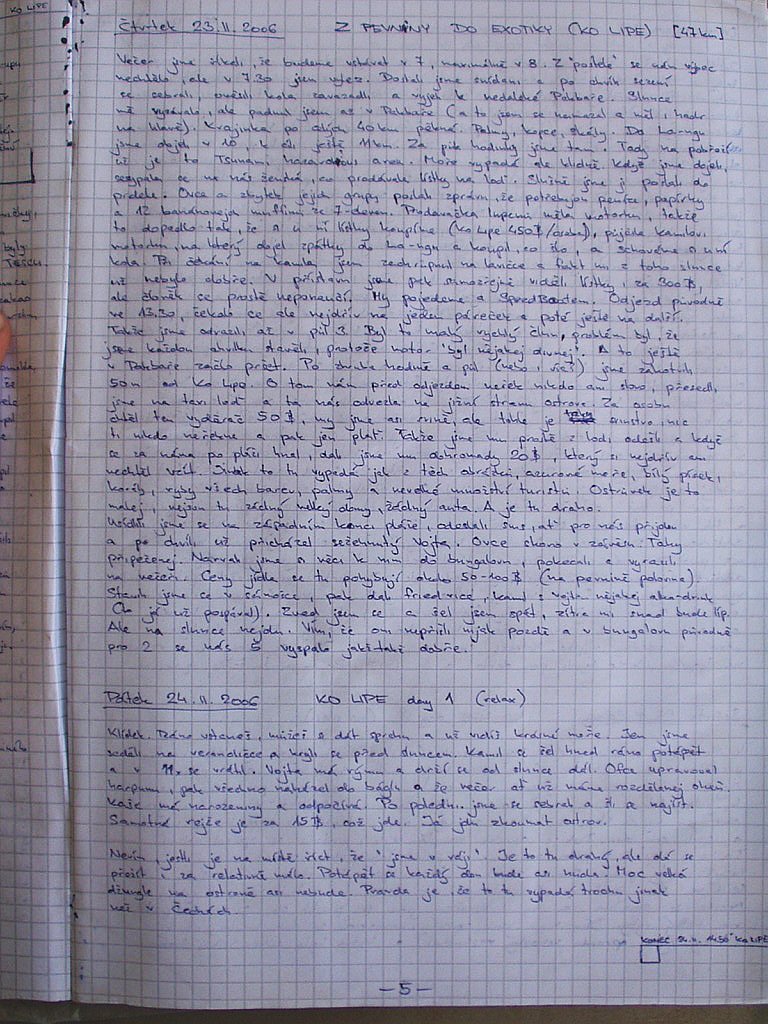 KO LIPE
Čtvrtek 23.11.2006 Z PEVNINY DO EXOTIKY (KO LIPE) [47km]
Večer jsme říkali, že budeme vstávat v 7, maximálně v 8. Z postele se nám vůbec
nechtělo, ale v 7.30 jsem vylez. Dostali jsme snídani a po chvíli sezení
se sebrali, pověsili kola zavazadly a vyjeli k nedaleké Pakbaře. Slunce
mě vysávalo, ale padnul jsem až v Pakbaře (a to jsem se nemazal a měl hadr
na hlavě). Krajinka po celých 40 km pěkná. Palmy, kopce, skály. Do La-ngu
jsme dojeli v 10, k cíli ještě 11km. Za půl hodiny jsme tam. Tady na pobřeží
už je to Tsunami hazardous area. Moře vypadá ale klidně. Když jsme dojeli,
sesypala se na nás ženská, co prodávala lístky na loď. Slušně jsme ji poslali do
prdele. Ovce a zbytek jejich grupy poslali zprávu, že potřebujou peníze, papírky
a 12 banánovejch muffinů ze 7-eleven. Prodavačka lupenů měla motorku, takže
to dopadlo tak, že si u ní lístky koupíme (Ko Lipe 450฿/osoba), půjčila Kamilovi
motorku, na který dojel zpátky do La-ngu a koupil, co šlo, a schováme si u ní
kola. Při čekání na Kamila jsem zachrápnul na lavičce a fakt mi z toho slunce
už nebylo dobře. V přístavu jsme pak samozřejmě viděli lístky za 300฿,
ale člověk se prostě nepoučí. My pojedeme a SpeedBoatem. Odjezd původně
ve 13.30, čekalo se ale nejdřív na jeden páreček a poté ještě na další.
Takže jsme odrazili až v půl 3. Byl to malý rychlý člun, problém byl, že
jsme každou chvilku stavěli, protože motor "byl nějakej divnej". A to ještě
v Pakbaře začlo pršet. Po zhruba hodině a půl (nebo i víc) jsme zakotvili
50m od Ko Lipe. O tom nám před odjezdem neřek nikdo ani slovo, přesedli
jsme na taxi loď a ta nás odvezla na jižní stranu ostrova. Za osobu
chtěl ten vyděrač 50฿, my jsme asi svině, ale tohle je svinstvo, nic
ti nikdo neřekne a pak jen plať. Takže jsme mu prostě z lodi odešli a když
se za náma po pláži hnal, dali jsme mu dohromady 20฿, který si nejdřív ani
nechtěl vzít. Jinak to tu vypadá jak z těch obrázků, azurové moře, bílý písek,
korály, ryby všech barev, palmy a nevelké množství turistů. Ostrůvek je to
malej, nejsou tu žádný velký domy, žádný auta. A je tu draho.
Usídlili jsme se na západním konci pláže, odeslali sms, ať pro nás přijdou
a po chvíli už přicházel sežehnutý Vojta. Ovce skoro v závěsu. Taky
připečenej. Narvali jsme si věci k nim do bungalovu, pokecali a vyrazili
na večeři. Ceny jídla se tu pohybují okolo 50-100฿ (na pevnině polovina).
Stavili jsme se v čínské, pak dali fried-rice, Kamil s Vojtou nějakej
(to já už pospával). Zved jsem se a šel jsem spát, zítra mi snad bude líp.
Ale na slunce nejdu. Vím, že oni nepřišli nijak pozdě a v bungalovu původně
pro 2 se nás 5 vyspalo jakž takž dobře.
Pátek 24.11.2006 KO LIPE day 1 (relax)
Klídek. Ráno vstaneš, můžeš si dát sprchu a už vidíš krásné moře. Jen jsme
seděli na verandičce a kryli se před sluncem. Kamil se šel hned ráno potápět
a v 11 se vrátil. Vojta má rýmu a drží se od slunce dál. Ofce upravoval
harpunu, pak všechno naházel do báglu a že večer ať už máme rozdělanej oheň.
Kašk má narozeniny a odpočívá. Po poledni jsme se sebrali a šli se najíst.
Samotná rejže je za 15฿, což jde. Já jdu zkoumat ostrov.
Nevím, jestli je na místě říct, že "jsme v ráji". Je to tu drahý, ale dá se
přežít i za relativně málo. Potápět se každý den bude asi nuda. Moc velká
džungle na ostrově asi nebude. Pravda je, že to tu vypadá trochu jinak
než v Čechách.
KONEC 24.11. 1450 KO LIPE
-5-